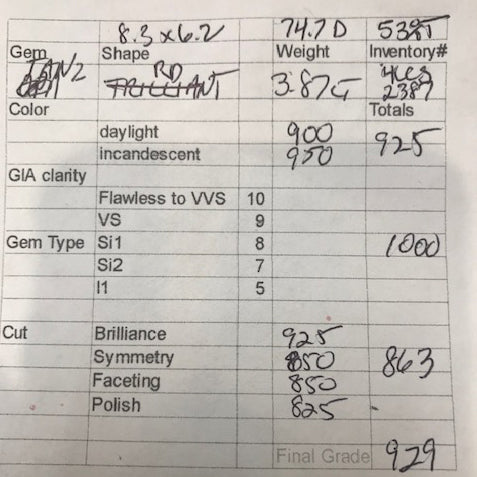 8.3 x 6.2 74.7 D
Gem Shape Weight Inventory#
TANZ RD 3.87ct
2387
Color Totals
daylight 900
incandescent 950 925
GIA clarity
Flawless to VVS 10
VS 9
Gem Type Si1 8 1000
Si2 7
I1 5
Cut Brilliance 925
Symmetry 850 863
Faceting 850
Polish 825
Final Grade 929